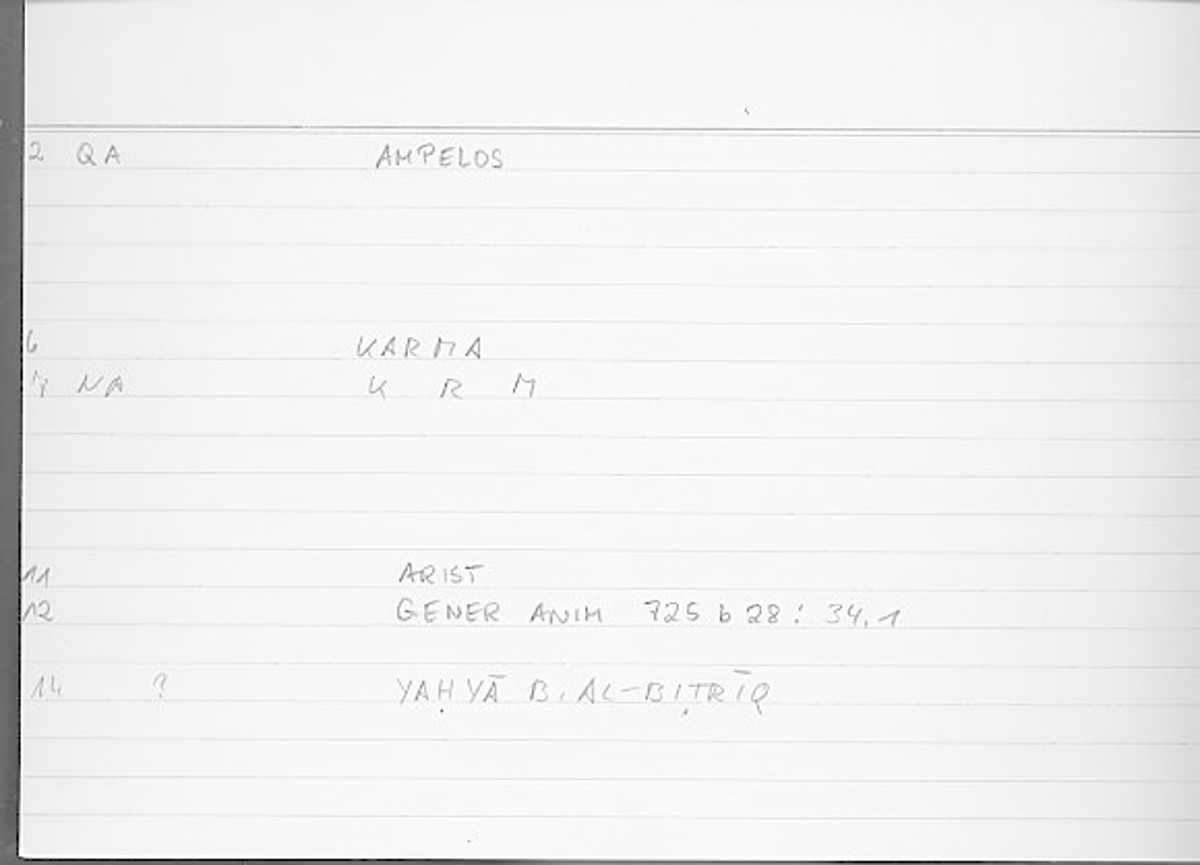 2 QA AMPELOS
6 KARMA
7 NA K R M
11 ARIST
12 GENER ANIM 725 b 28 : 34,1
14 ? YAḤYĀ B. AL-BIṬRĪQ